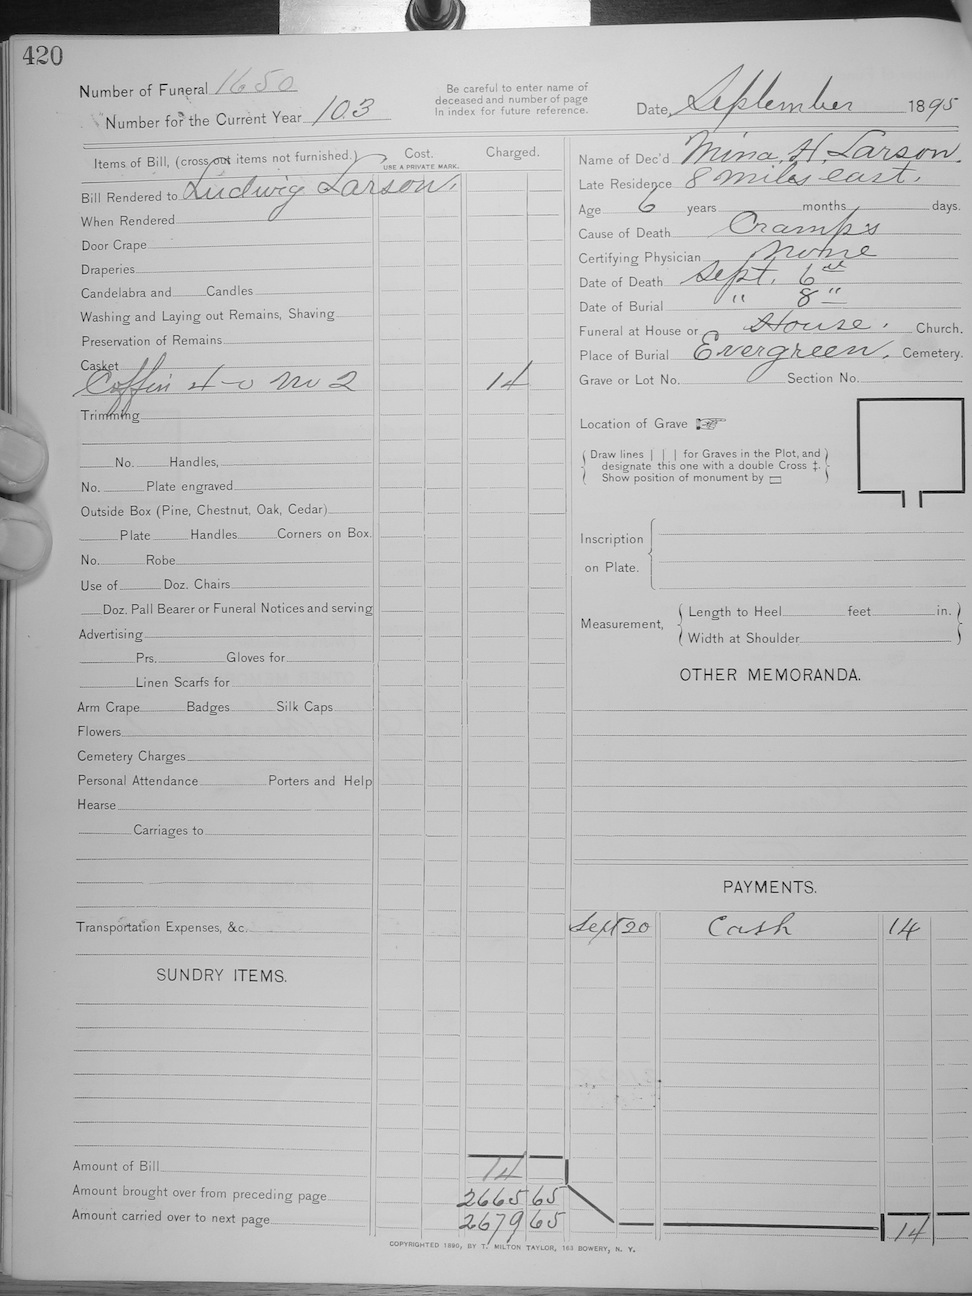 420
Number of Funeral 1650
Be careful to enter name of
deceased and number of page
In index for future reference.
Number for the Current Year 103
Date, September 1895
Items of Bill, (cross out items not furnished.)
Cost.
USE A PRIVATE MARK.
Charged.
Bill Rendered to Ludwig Larson.
When Rendered
Door Crape
Draperies
Candelabra and Candles
Washing and Laying out Remains, Shaving
Preservation of Remains
Casket
Coffin 4-0 No 2 14
Trimming
No. Handles,
No. Plate engraved
Outside Box (Pine, Chestnut, Oak, Cedar)
Plate Handles Corners on Box.
No. Robe
Use of Doz. Chairs
Doz. Pall Bearer or Funeral Notices and serving
Advertising
Prs. Gloves for
Linen Scarfs for
Arm Crape Badges Silk Caps
Flowers
Cemetery Charges
Personal Attendance Porters and Help
Hearse
Carriages to
Transportation Expenses, &c.
SUNDRY ITEMS.
Amount of Bill 14
Amount brought over from preceding page 2665 65
Amount carried over to next page 2679 65
Name of Dec'd Mina H. Larson.
Late Residence 8 miles east.
Age 6 years months days.
Cause of Death Cramps
Certifying Physician None
Date of Death Sept. 6th
Date of Burial " 8"
Funeral at House or House. Church.
Place of Burial Evergreen. Cemetery.
Grave or Lot No. Section No.
Location of Grave ☞
Draw lines | | | for Graves in the Plot, and
designate this one with a double Cross ‡.
Show position of monument by ▭
Inscription
on Plate.
Measurement,
Length to Heel feet in.
Width at Shoulder
OTHER MEMORANDA.
PAYMENTS.
Sept 20 Cash 14
14
COPYRIGHTED 1890, BY T. MILTON TAYLOR, 163 BOWERY, N. Y.